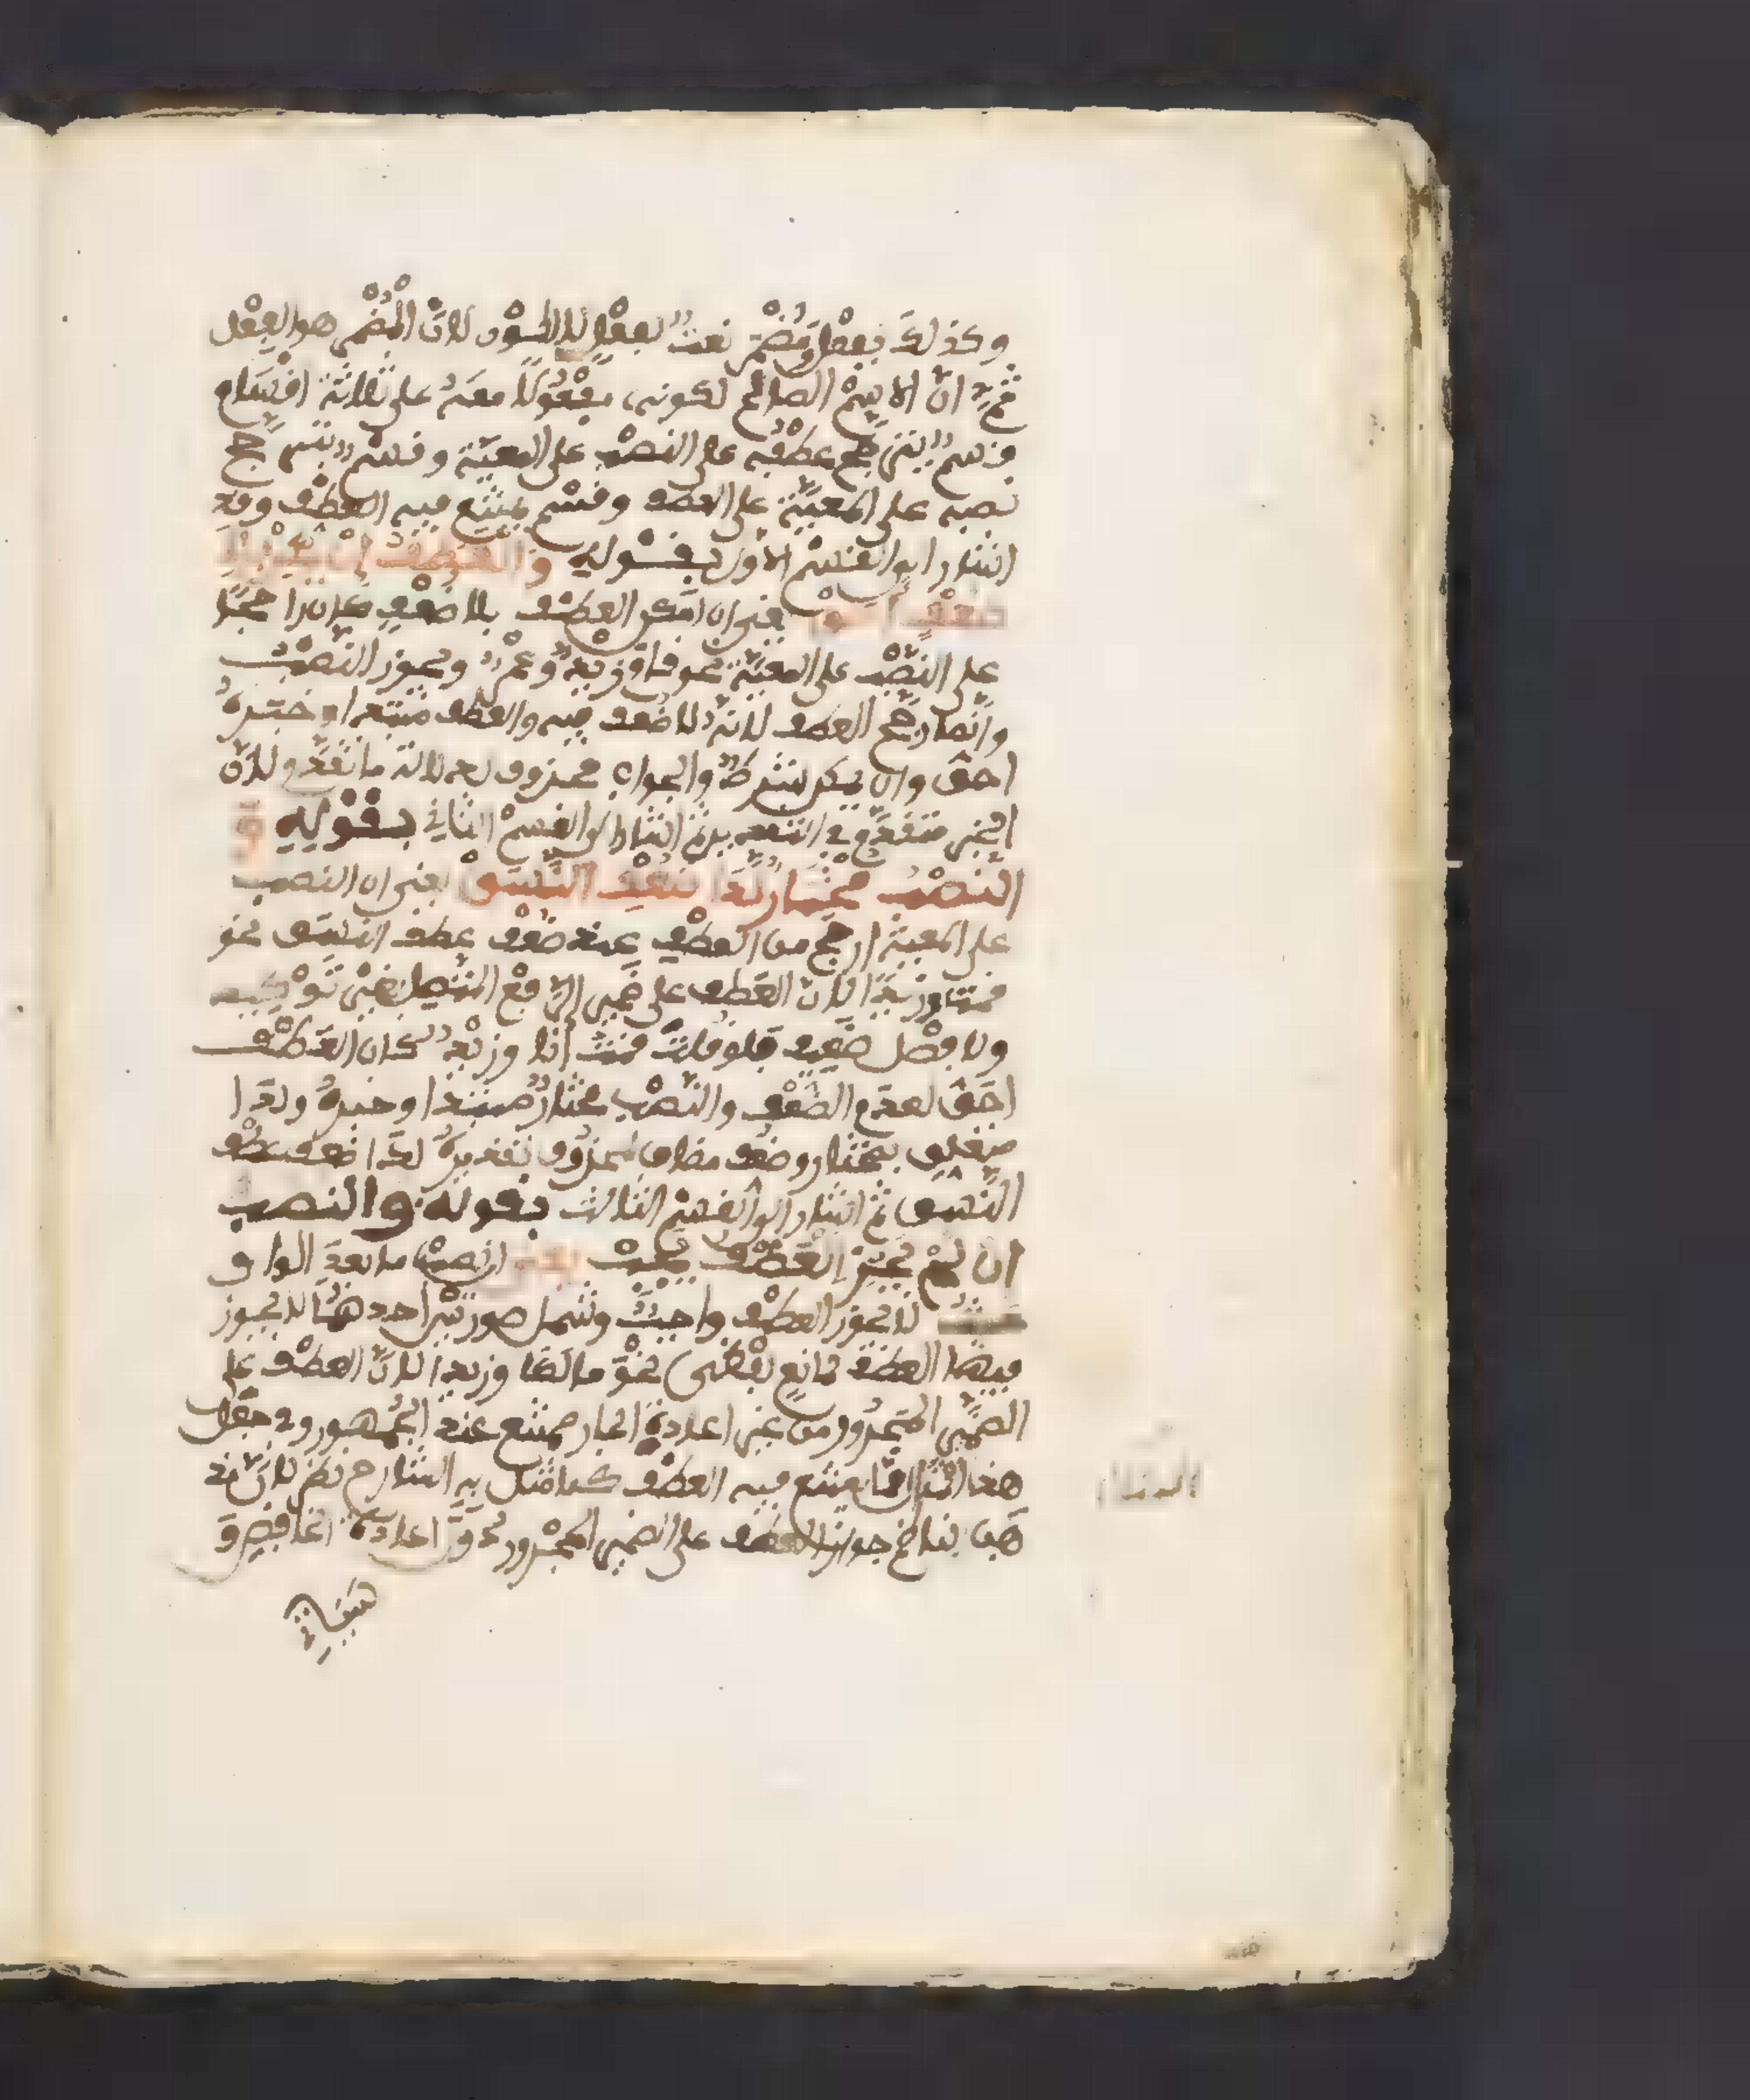 وكذلك بفعل ومضمر نعت لفعل لا للسؤال لان المضمر هو الفعل
ثم ان الاسم الصالح لكونه مفعولا معه على ثلاثة افسام
فسم يترجح عطفه على النصب على المعية وفسم يترجح
نصبه على المعية على العطف وفسم يمتنع فيه العطف وفد
اشار الى الفسم الاول بفوله والعطف ان يمكن بلا
ضعف احق يعني ان امكن العطف بلا ضعف كان راجحا
على النصب على المعية نحو فام زيد وعمر ويجوز النصب
وانما رجح العطف لانه لا ضعف فيه والعطف مبتدا وخبره
احق وان يمكن شرط والجواب محذوف لدلالة ما تفدم لان
الخبر متفدم في التفدير ثم اشار الى الفسم الثاني بفوله و
النصب مختار لدا ضعف النسق يعني ان النصب
على المعية ارجح من العطف عند ضعف عطف النسق نحو
فمت وزيدا لان العطف على ضمير الرفع المتصل بغير توكيد
ولا فصل ضعيف فلو فلت فمت انا وزيد لكان العطف
احق لعدم الضعف والنصب مختار مبتدا وخبره ولدا
متعلق بمختار وضعف مضاف لمحذوف تفديره لدا ضعف عطف
النسق ثم اشار الى الفسم الثالث بفوله والنصب
ان لم يجز العطف يجب يعني ان نصب ما بعد الواو
حيث لا يجوز العطف واجب وشمل صورتين احدهما لا يجوز
فيها العطف لمانع لفظي نحو ما لك وزيدا لان العطف على
الضمير المجرور من غير اعادة الجار ممتنع عند الجمهور وفي جعل
هذا المثال مما يمتنع فيه العطف كما مثل به الشارح نظر لان مذ
هب الناظم جواز العطف على الضمير المجرور دون اعادة الخافض و